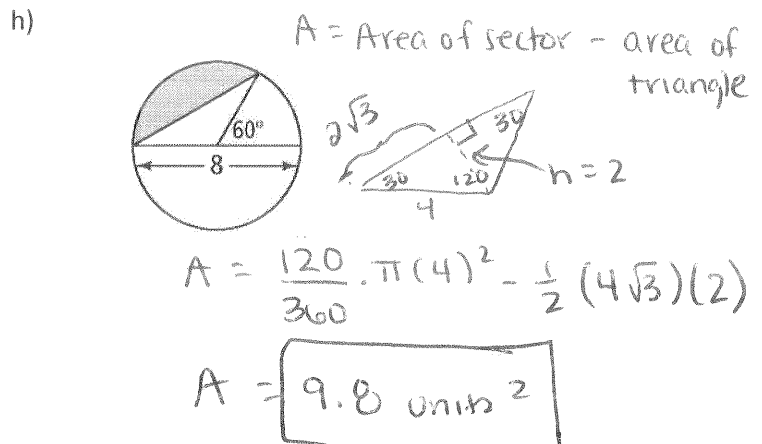 h)
A = Area of sector - area of
triangle
60°
8
2√3
30
30
120
h = 2
4
A = 120/360 · π(4)² - 1/2 (4√3)(2)
A = 9.8 units²